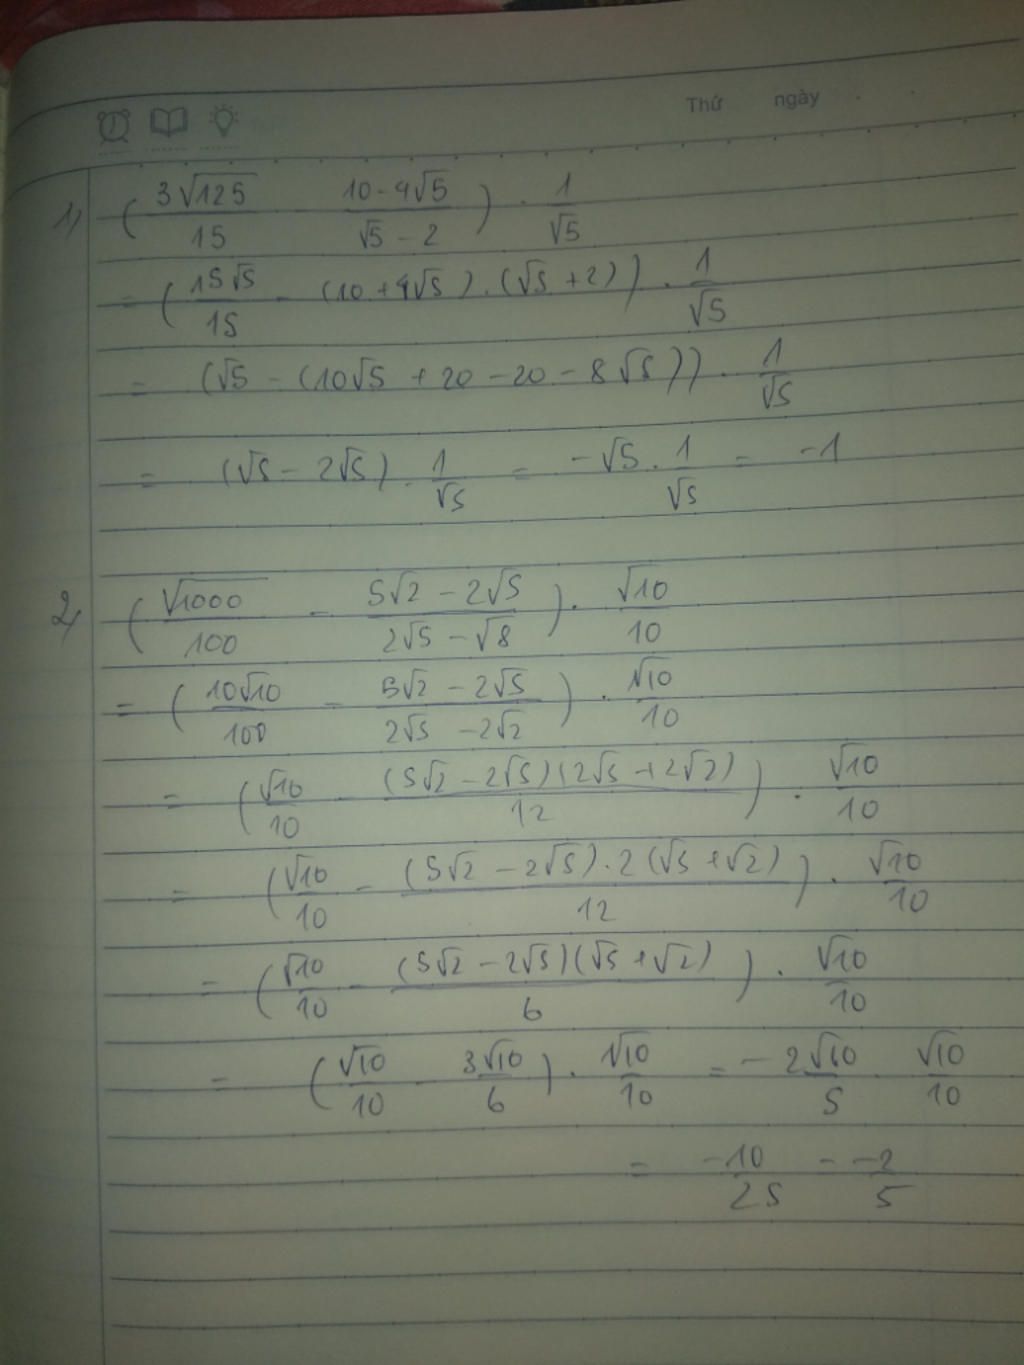 Thứ ngày
1) ( 3√125 / 15 - (10 - 4√5) / (√5 - 2) ) . 1/√5
= ( 15√5 / 15 - (10 + 4√5) . (√5 + 2) ) . 1/√5
= (√5 - (10√5 + 20 - 20 - 8√5)) . 1/√5
= (√5 - 2√5) . 1/√5 = -√5 . 1/√5 = -1
2) ( √1000 / 100 - (5√2 - 2√5) / (2√5 - √8) ) . √10 / 10
= ( 10√10 / 100 - (5√2 - 2√5) / (2√5 - 2√2) ) . √10 / 10
= ( √10 / 10 - (5√2 - 2√5)(2√5 + 2√2) / 12 ) . √10 / 10
= ( √10 / 10 - (5√2 - 2√5) . 2(√5 + √2) / 12 ) . √10 / 10
= ( √10 / 10 - (5√2 - 2√5)(√5 + √2) / 6 ) . √10 / 10
= ( √10 / 10 - 3√10 / 6 ) . √10 / 10 = - 2√10 / 5 . √10 / 10
= -10 / 25 = -2 / 5